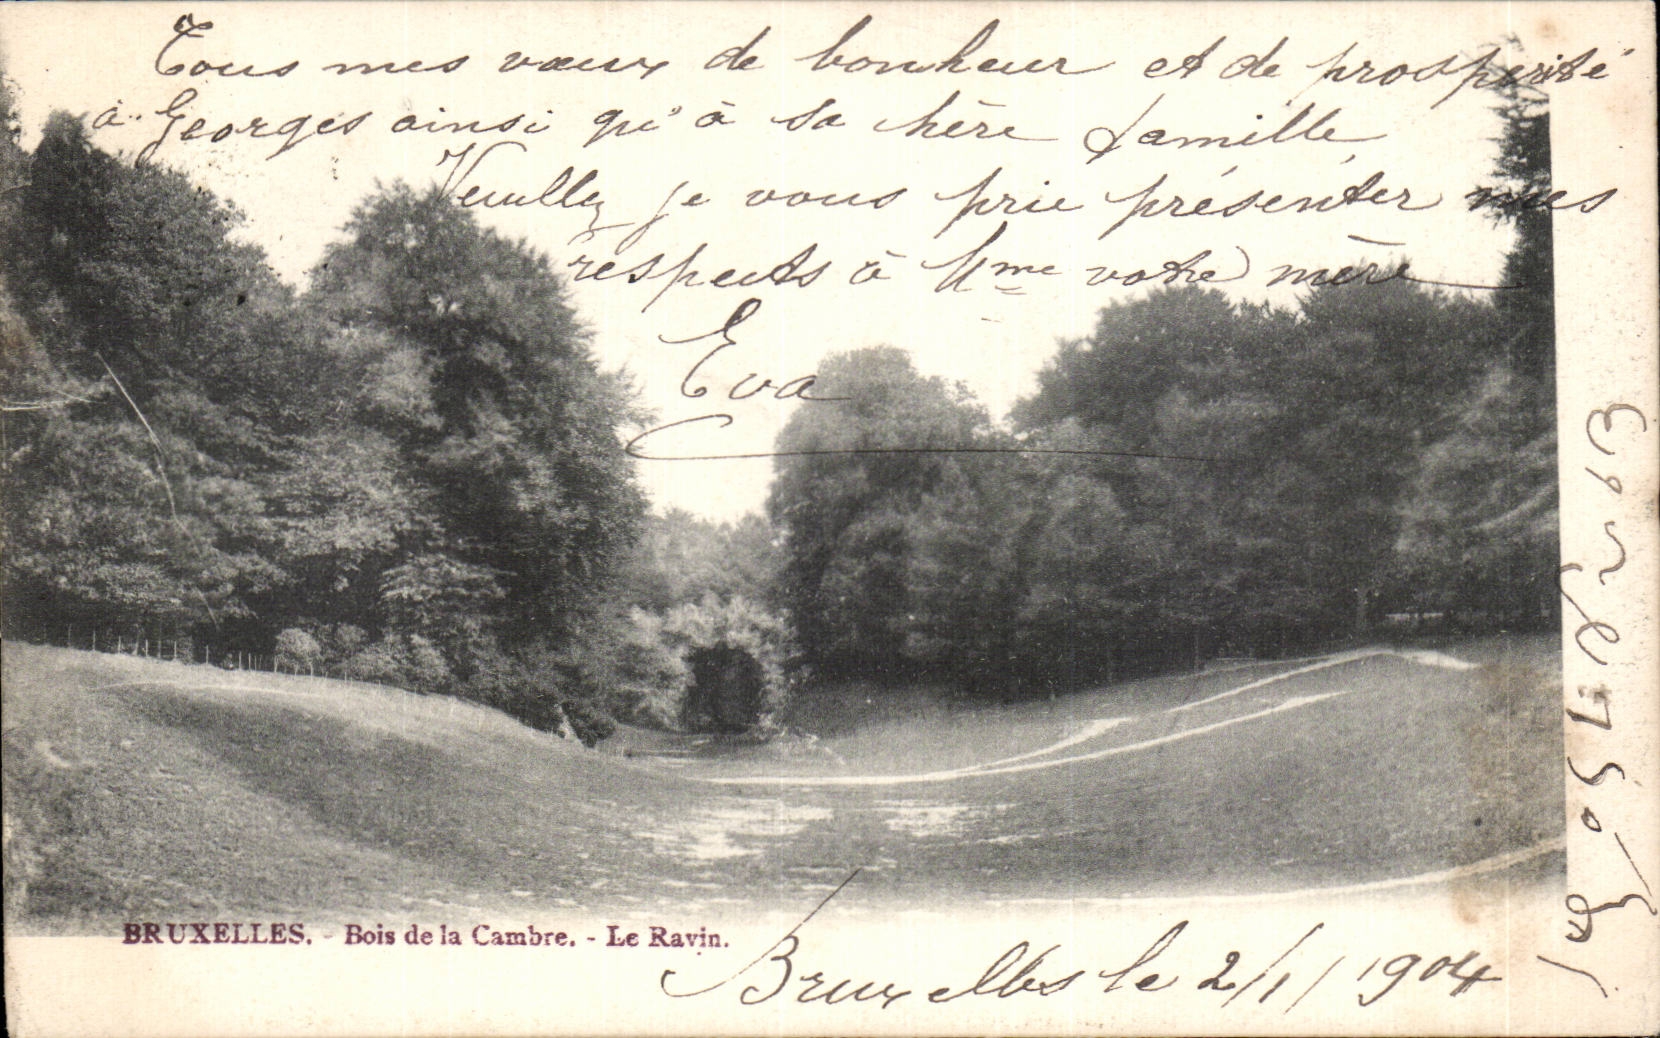 Tous mes vœux de bonheur et de prosperité
à Georges ainsi qu'à sa chère famille,
Veuillez je vous prie présenter mes
respects à Mme votre mère
Eva
BRUXELLES. - Bois de la Cambre. - Le Ravin.
Bruxelles le 2/1/1904